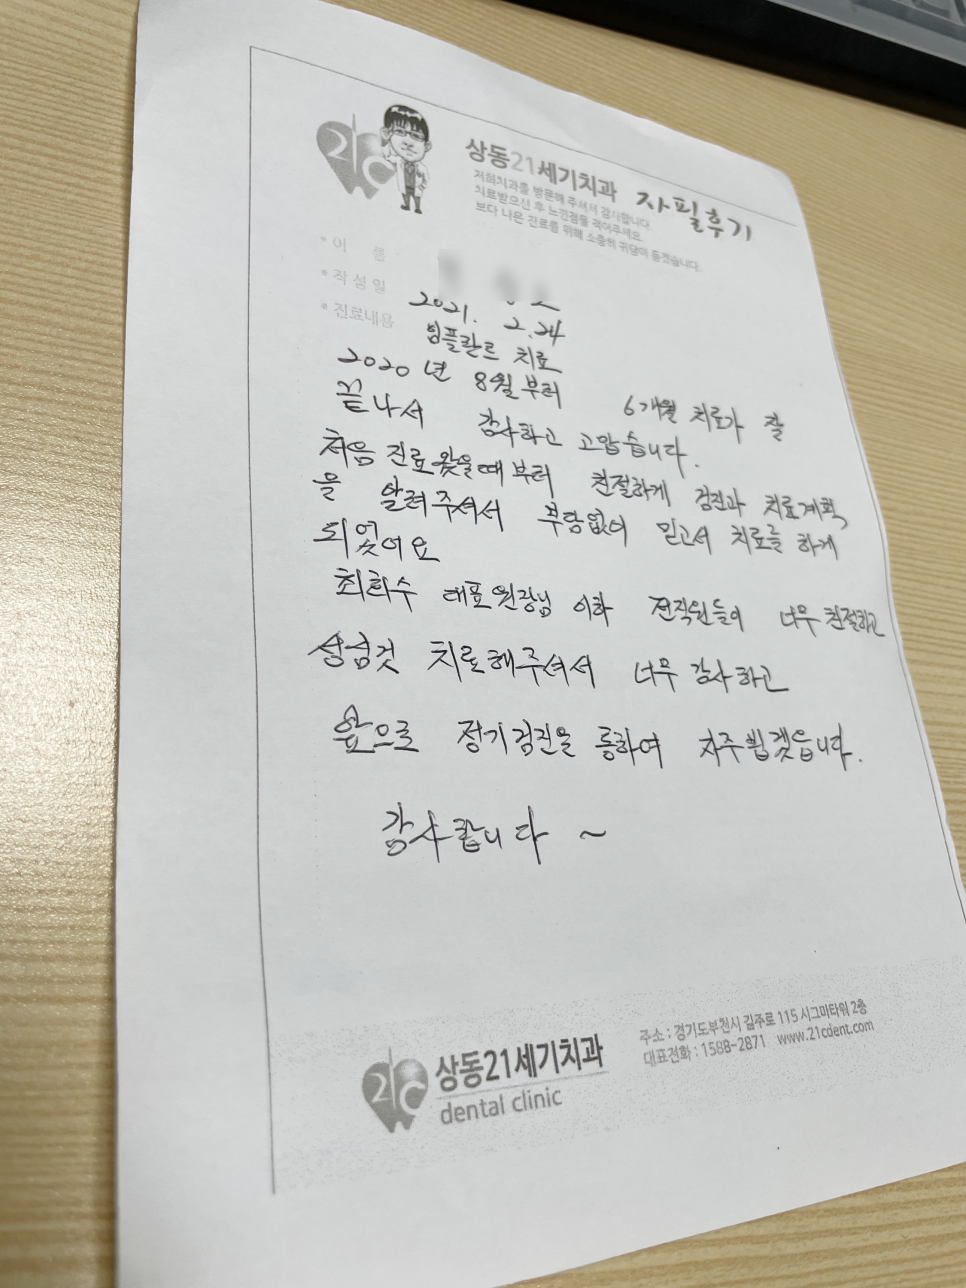 21c
상동21세기치과 자필후기
저희치과를 방문해 주셔서 감사합니다.
치료받으신 후 느낀점을 적어주세요.
보다 나은 진료를 위해 소중히 귀담아 듣겠습니다.
* 이 름
* 작성일 2021. 2.24
* 진료내용 임플란트 치료
2020년 8월부터 6개월 치료가 잘
끝나서 감사하고 고맙습니다.
처음 진료 왔을때부터 친절하게 검진과 치료계획
을 알려주셔서 부담없이 믿고서 치료를 하게
되었어요
최희수 대표원장님 이하 전직원들이 너무 친절하고
성심껏 치료해주셔서 너무 감사하고
앞으로 정기검진을 통하여 자주뵙겠습니다.
감사합니다 ~
21c
상동21세기치과
dental clinic
주소 : 경기도부천시 길주로 115 시그마타워 2층
대표전화 : 1588-2871 www.21cdent.com